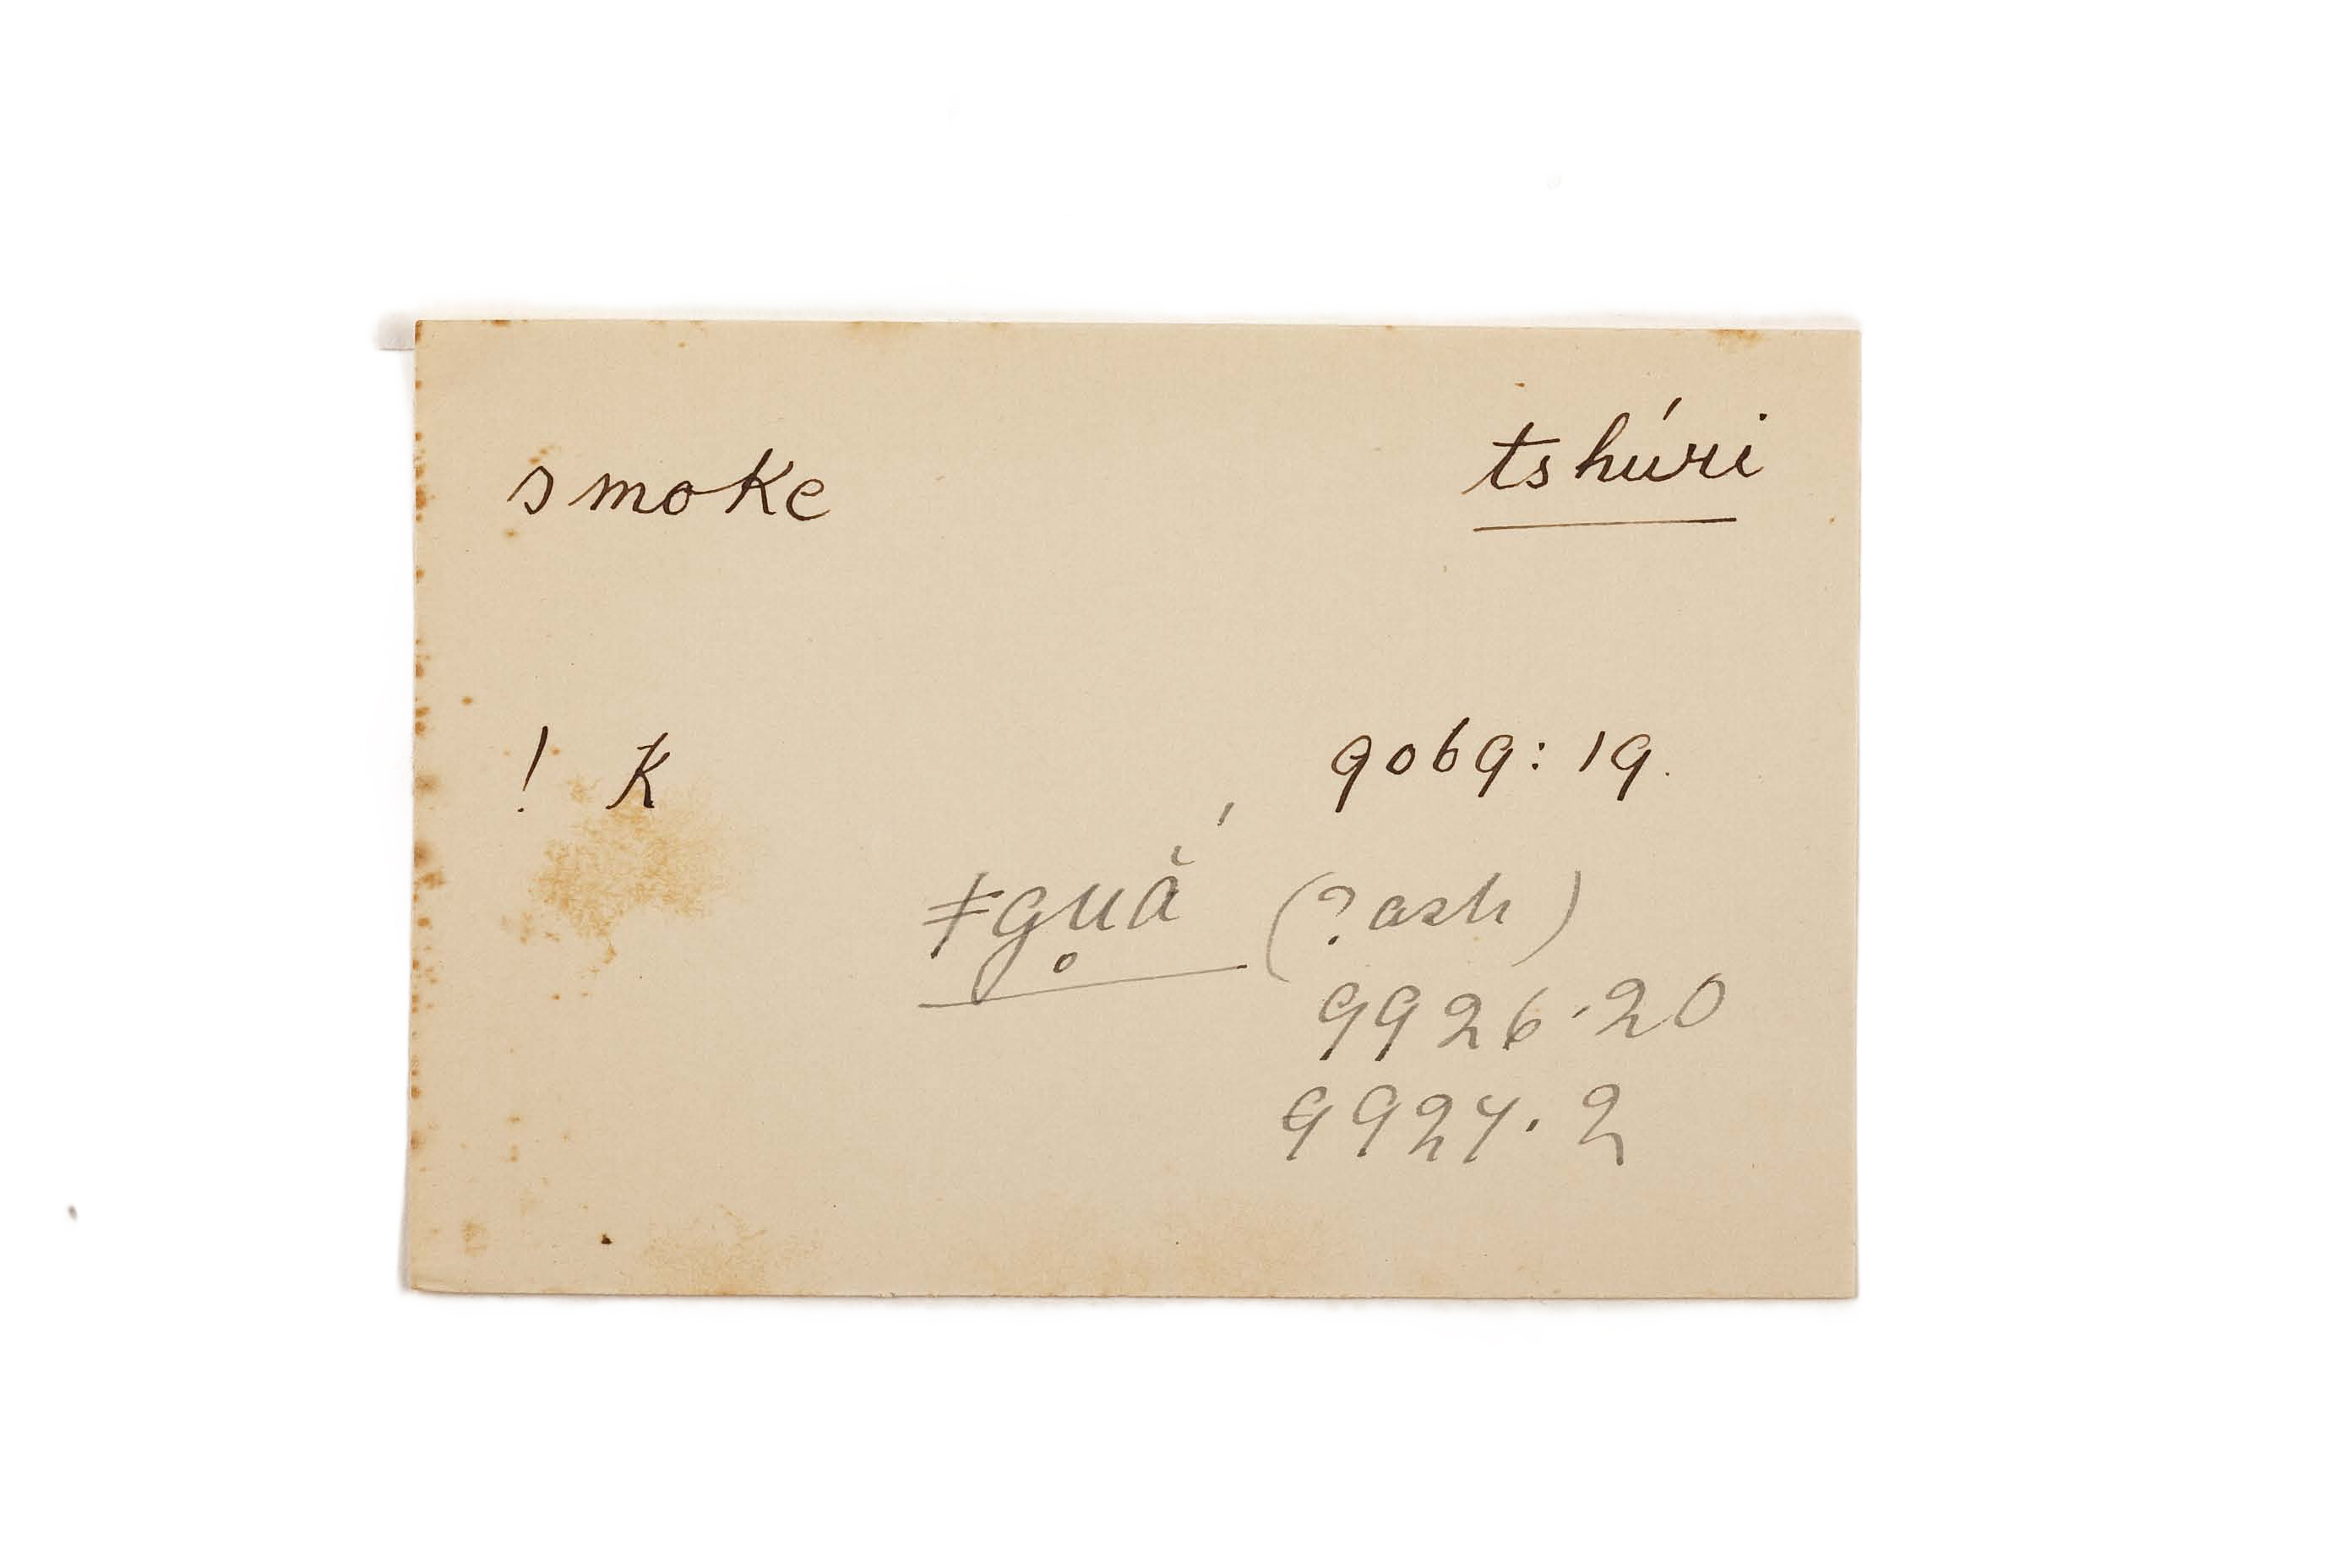 smoke tshúri
! K 9069: 19.
ǂgu̥ắ (? ash)
9926·20
9927. 2